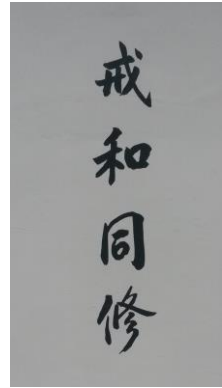 戒和同修